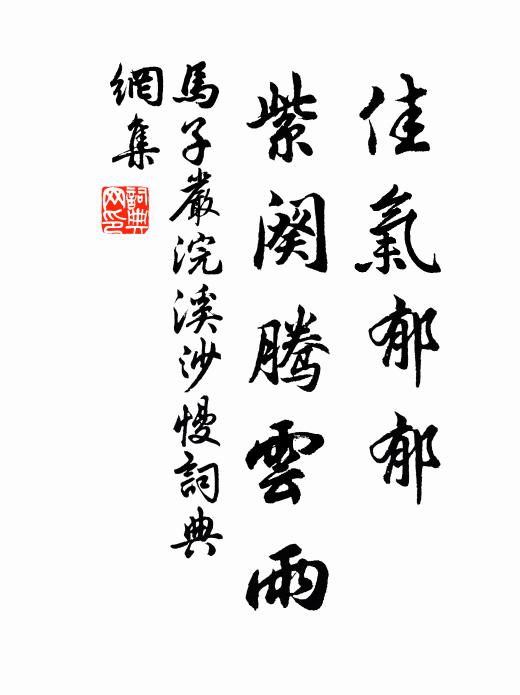 佳氣郁郁
紫闕騰雲雨
馬子嚴浣溪沙慢詞典
網集
詞典網印